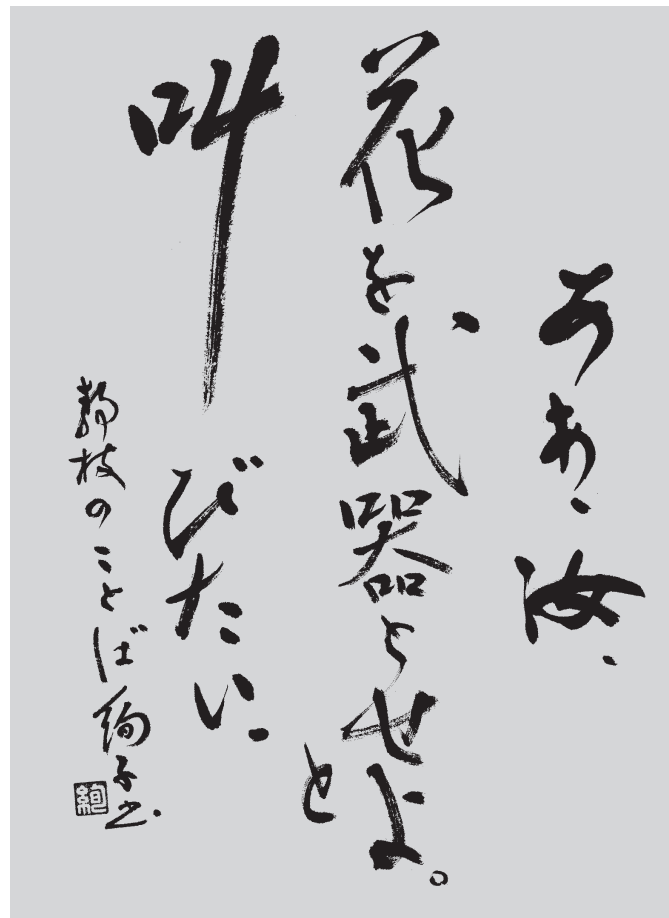 ああ、汝、
花を武器とせよ。
と
叫びたい、
静枝のことば 絢子书
絢